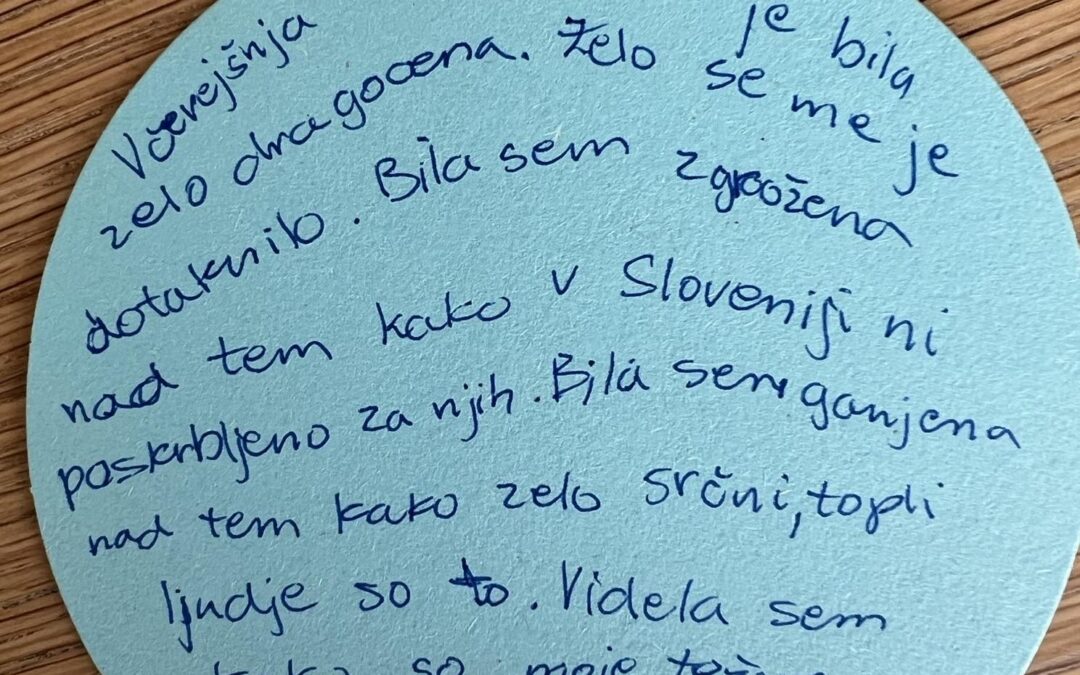 Včerejšnja je bila
zelo dragocena. Zelo se me je
dotaknilo. Bila sem zgrožena
nad tem kako v Sloveniji ni
poskrbljeno za njih. Bila sem ganjena
nad tem kako zelo srčni, topli
ljudje so to. Videla sem
so moje